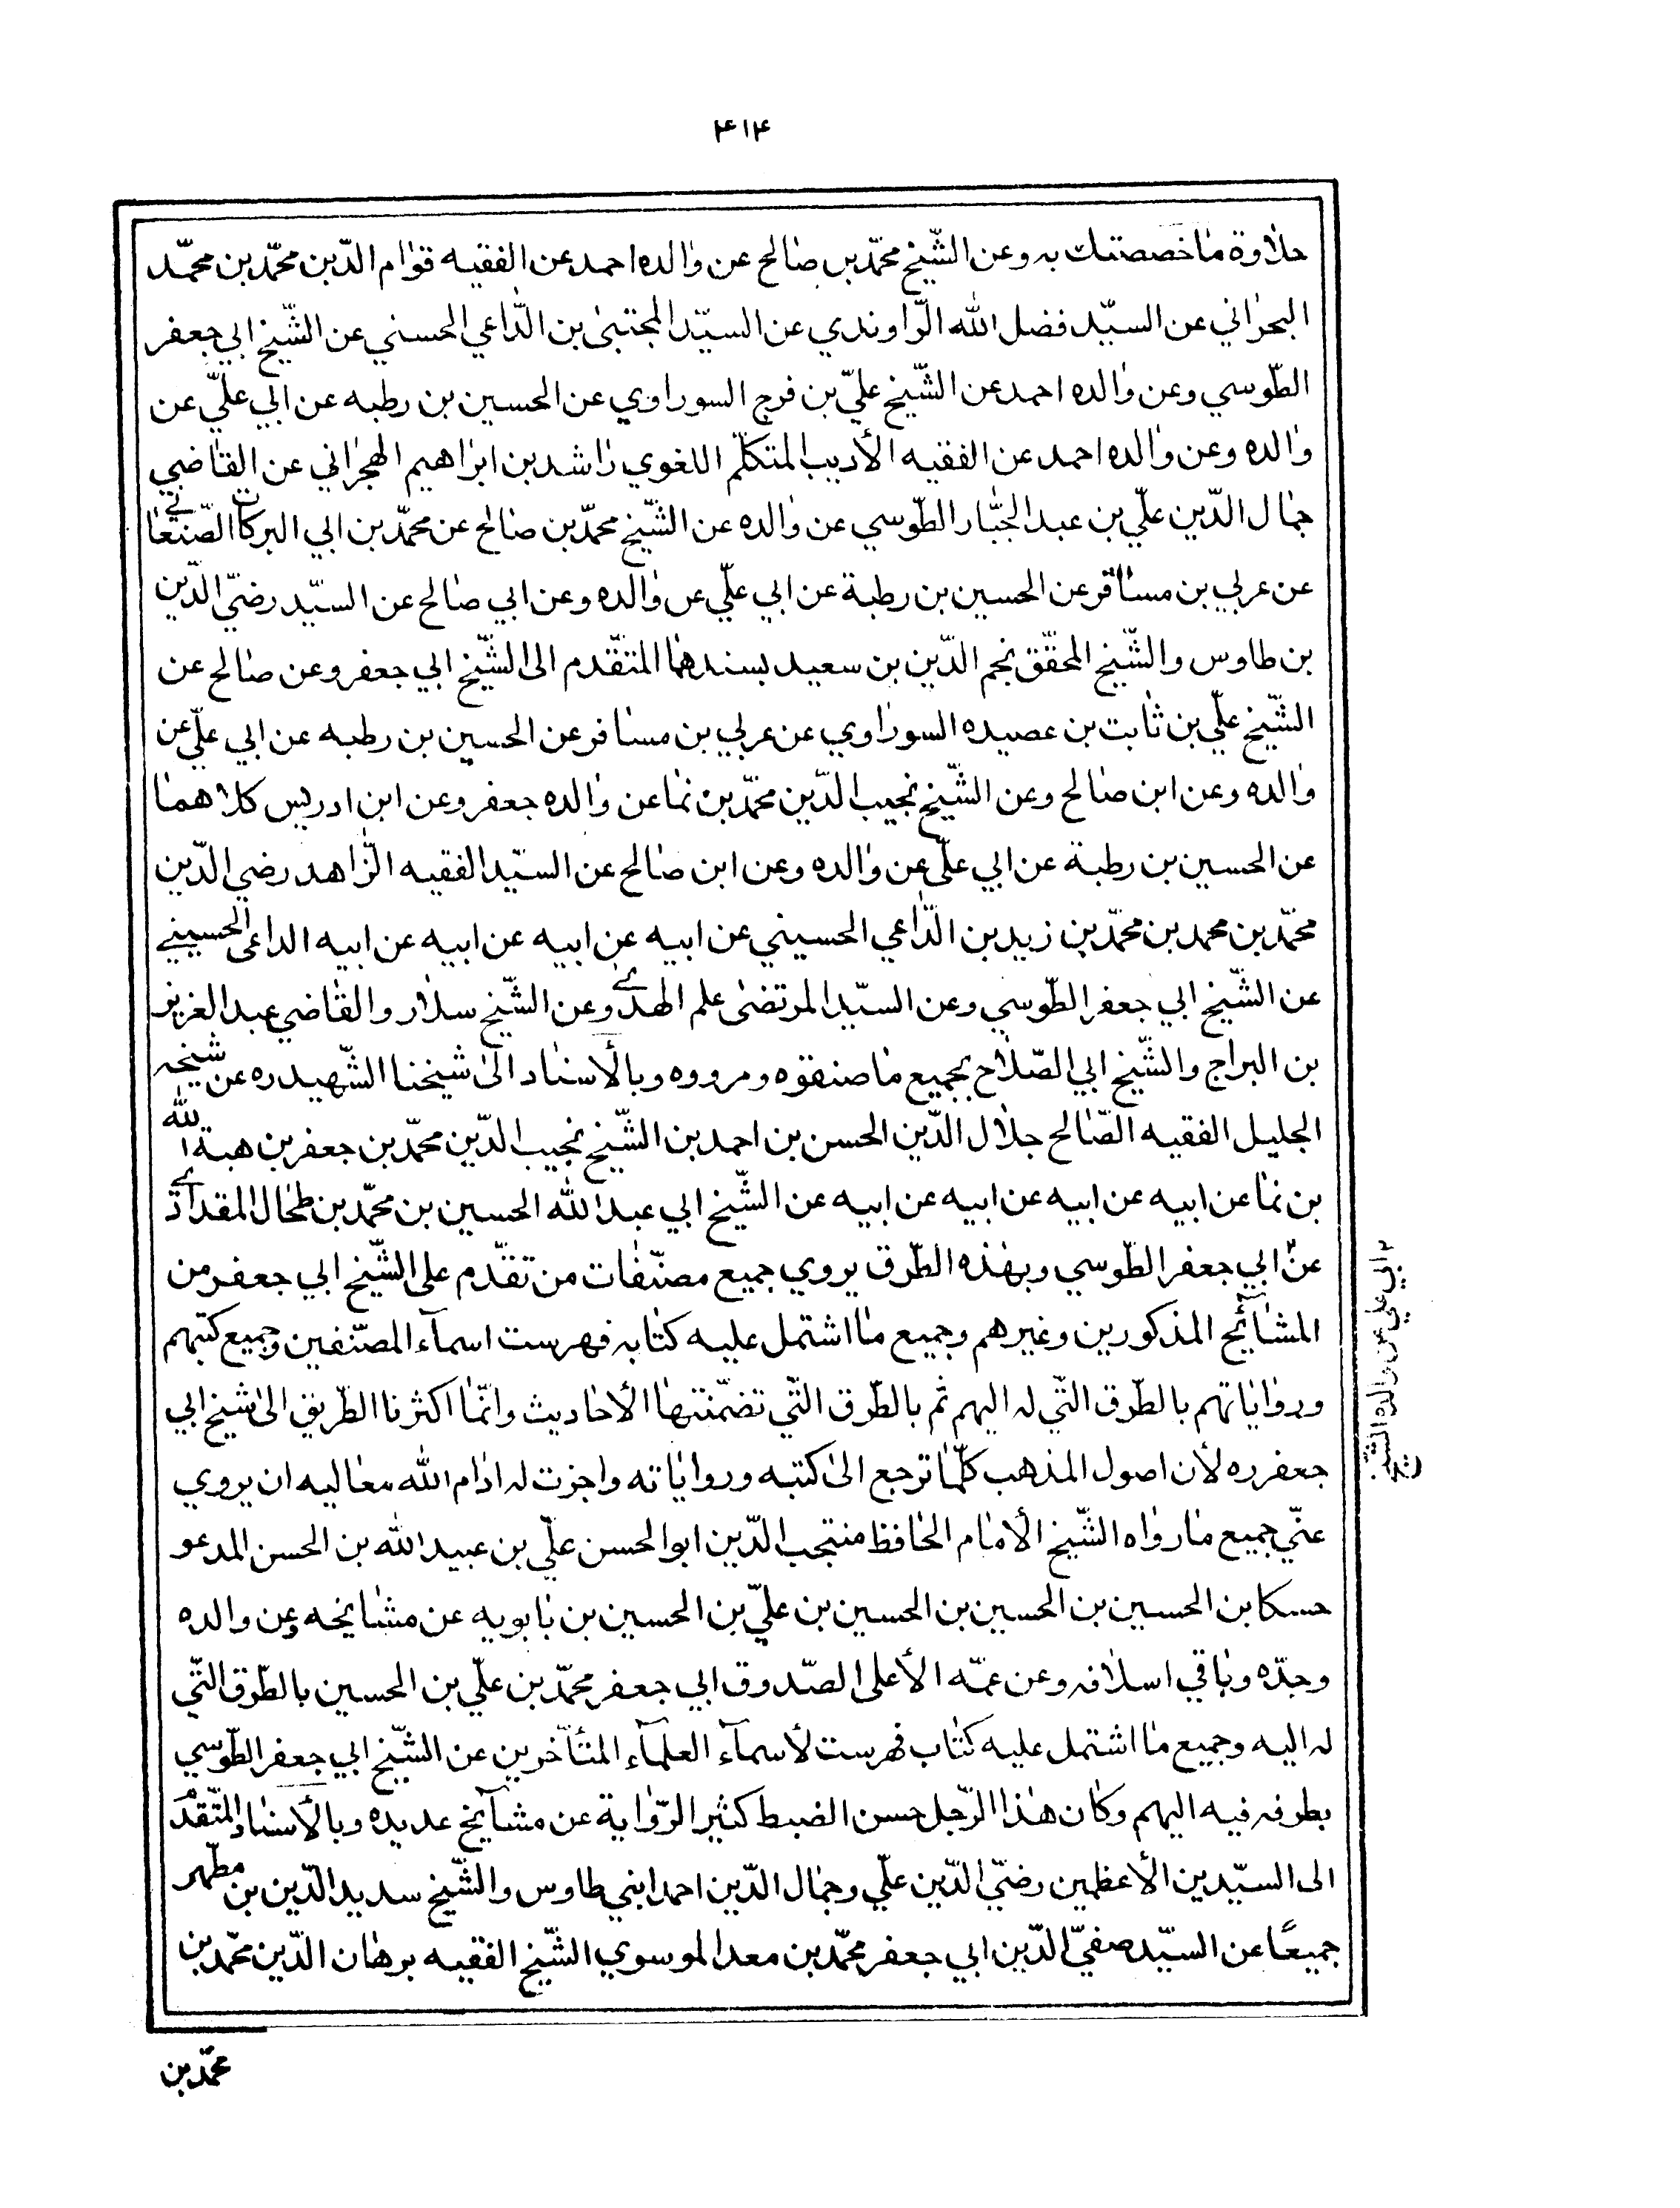 ۴۱۴
حلاوة ما خصصتك به وعن الشّيخ محمّد بن صالح عن والده احمد عن الفقيه قوام الدّين محمّد بن محمّد
البحراني عن السيّد فضل الله الرّاوندي عن السيّد المجتبى بن الدّاعي الحسني عن الشّيخ ابي جعفر
الطّوسي وعن والده احمد عن الشّيخ عليّ بن فرج السوراوي عن الحسين بن رطبه عن ابي عليّ عن
والده وعن والده احمد عن الفقيه الأديب المتكلّم اللغوي راشد بن ابراهيم الهجراني عن القاضي
جمال الدّين علّي بن عبد الجبّار الطّوسي عن والده عن الشّيخ محمّد بن صالح عن محمّد بن ابي البركات الصّنعاني
عن عربي بن مسافر عن الحسين بن رطبة عن ابي علّي عن والده وعن ابي صالح عن السيّد رضيّ الدّين
بن طاوس والشّيخ المحقّق نجم الدّين بن سعيد بسندهما المتقدّم الى الشّيخ ابي جعفر وعن صالح عن
الشّيخ علّي بن ثابت بن عصيده السوراوي عن عربي بن مسافر عن الحسين بن رطبه عن ابي علّي عن
والده وعن ابن صالح وعن الشّيخ نجيب الدّين محمّد بن نما عن والده جعفر وعن ابن ادريس كلاهما
عن الحسين بن رطبة عن ابي علّي عن والده وعن ابن صالح عن السيّد الفقيه الزّاهد رضي الدّين
محمّد بن محمد بن محمّد بن زيد بن الدّاعي الحسيني عن ابيه عن ابيه عن ابيه عن ابيه الداعي الحسيني
عن الشّيخ ابي جعفر الطّوسي وعن السيّد المرتضى علم الهدى وعن الشّيخ سلار والقاضي عبد العزيز
بن البراج والشّيخ ابي الصّلاح بجميع ما صنفوه ومرووه وبالأسناد الى شيخنا الشّهيد ره عن شيخه
الجليل الفقيه الصّالح جلال الدّين الحسن بن احمد بن الشّيخ نجيب الدّين محمّد بن جعفر بن هبة الله
بن نما عن ابيه عن ابيه عن ابيه عن ابيه عن الشّيخ ابي عبد الله الحسين بن محمّد بن طحال المقدادي
عن ابي جعفر الطّوسي وبهذه الطّرق يروي جميع مصنّفات من تقدّم على الشّيخ ابي جعفر من
المشائخ المذكورين وغيرهم وجميع ما اشتمل عليه كتابه فهرست اسمآء المصنّفين وجميع كتبهم
ورواياتهم بالطّرق الّتي له اليهم ثم بالطّرق الّتي تضمّنتها الأحاديث وانّما اكثرنا الطّريق الى شيخ ابي
جعفر ره لأن اصول المذهب كلّما ترجع الى كتبه ورواياته واجزت له ادام الله معاليه ان يروي
عنّي جميع ما رواه الشّيخ الأمام الحافظ منتجب الدّين ابو الحسن علّي بن عبيد الله بن الحسن المدعو
حسكا بن الحسين بن الحسين بن الحسين بن عليّ بن الحسين بن بابويه عن مشايخه وعن والده
وجدّه وباقي اسلافه وعن عمّه الأعلى الصّدوق ابي جعفر محمّد بن علّي بن الحسين بالطّرق الّتي
له اليه وجميع ما اشتمل عليه كتاب فهرست لأسمآء العلمآء المتأخّرين عن الشّيخ ابي جعفر الطّوسي
بطرفه فيه اليهم وكان هذا الرّجل حسن الضبط كثير الرّواية عن مشآيخ عديده وبالأسناد المتّقدّم
الى السيّدين الأعظمين رضيّ الدّين علّي وجمال الدّين احمد ابني طاوس والشّيخ سديد الدّين بن مطهر
جميعًا عن السيّد صفيّ الدّين ابي جعفر محمّد بن معد الموسوي الشّيخ الفقيه برهان الدّين محمّد بن
محمّد بن
ابي علي عن والده الشّيخ